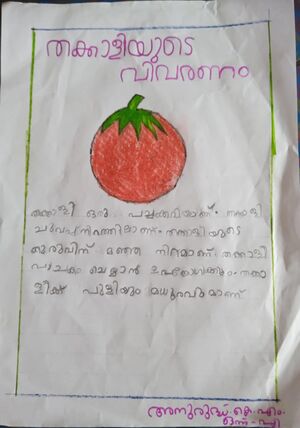 തക്കാളിയുടെ
വിവരണം
തക്കാളി ഒരു പച്ചക്കറിയാണ്. തക്കാളി
ചുവപ്പ് നിറത്തിലാണ്. തക്കാളിയുടെ
കുരുവിന് മഞ്ഞ നിറമാണ്. തക്കാളി
പാചകം ചെയ്യാൻ ഉപയോഗിക്കും. തക്കാ
ളിക്ക് പുളിയും മധുരവുമാണ്
അനുരുദ്ധ്. കെ. എം.
ഒന്ന് - എ